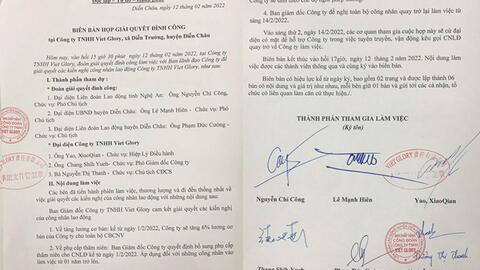 Độc lập – Tự do – Hạnh phúc
Diễn Châu, ngày 12 tháng 02 năm 2022
BIÊN BẢN HỌP GIẢI QUYẾT ĐÌNH CÔNG
tại Công ty TNHH Viet Glory, xã Diễn Trường, huyện Diễn Châu
Hôm nay, vào hồi 15 giờ 30 phút ngày 12 tháng 02 năm 2022, tại Công ty
TNHH Viet Glory, đoàn giải quyết đình công làm việc với Ban lãnh đạo Công ty để
giải quyết các kiến nghị công nhân lao động Công ty TNHH Viet Glory, như sau:
I. Thành phần tham dự:
* Đoàn giải quyết đình công:
1. Đại diện Liên đoàn Lao động tỉnh Nghệ An: Ông Nguyễn Chí Công,
Chức vụ: Phó Chủ tịch
2. Đại diện UBND huyện Diễn Châu: Ông Lê Mạnh Hiên - Chức vụ: Phó
Chủ tịch
3. Đại diện Liên đoàn Lao động huyện Diễn Châu: Ông Phạm Đức Cường -
Chức vụ: Chủ tịch
* Đại diện Công ty TNHH Viet Glory
1. Ông Yao, XiaoQian - Chức vụ: Hiệp Lý Điều hành
2. Ông Chang Shih Yueh- Chức vụ: Phó Giám đốc Công ty
3. Bà Nguyễn Thị Thanh - Chức vụ: Chủ tịch CĐCS
II. Nội dung làm việc
Các bên đã tiến hành phiên làm việc, thương lượng và đi đến thống nhất về
việc giải quyết các kiến nghị của công nhân lao động với những nội dung sau:
Ban Giám đốc Công ty TNHH Viet Glory cam kết giải quyết các kiến nghị
của công nhân lao động.
1. Về tăng lương cơ bản: kể từ ngày 1/2/2022, Công ty sẽ tăng 6% lương
cơ bản của Công ty cho toàn bộ CBCNV
2. Về phụ cấp thâm niên: Ban Giám đốc Công ty quyết định bổ sung phụ cấp
thâm niên cho CNLĐ kể từ ngày 1/2/2022. Áp dụng đối với những công nhân vào
làm việc từ 01 năm trở lên.
4. Ban Giám đốc Công ty đề nghị toàn bộ công nhân quay trở lại làm việc từ
sáng 14/2/2022.
Vào sáng thứ 2, ngày 14/2/2022, các cơ quan tham gia cuộc họp này sẽ cử đại
diện có mặt để hỗ trợ Công ty trong việc tuyên truyền, vận động kêu gọi CNLĐ
quay trở về Công ty làm việc.
Biên bản kết thúc vào hồi ngày 12 tháng 2 năm 2022. Nội dung làm việc
được các thành viên thông qua và cùng ký vào biên bản.
Biên bản có hiệu lực kể từ ngày ký, bao gồm 02 trang và được lập thành 06
bản có nội dung và giá trị như nhau, mỗi bên giữ 01 bản và gửi tới các cá nhân, tổ
chức có liên quan làm căn cứ thực hiện./.
THÀNH PHẦN THAM GIA LÀM VIỆC
(Ký tên)
Nguyễn Chí Công Lê Mạnh Hiên Yao, XiaoQian